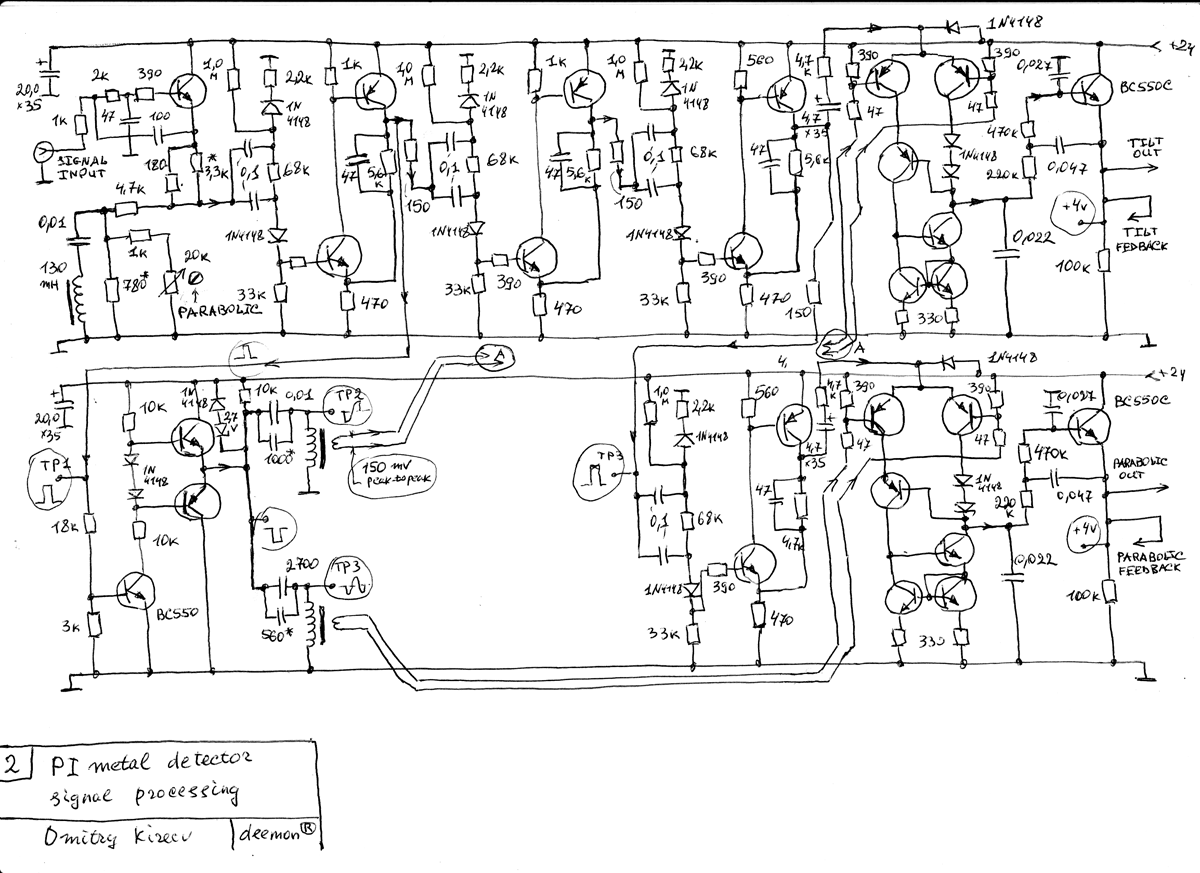 1N4148
+24
20,0
x35
2K
390
1,0
M
2,2K
1N
4148
1K
1,0
M
2,2K
1N
4148
1K
1,0
M
2,2K
1N
4148
560
4,7
K
390
390
0,027
BC550C
1K
47
100
SIGNAL
INPUT
180
3,3K*
0,1
68K
47
5,6
K
0,1
68K
47
5,6K
0,1
68K
47
5,6K
4,7
x35
47
47
1N4148
470K
220K
0,047
TILT
OUT
4,7K
150
150
+4V
TILT
FEDBACK
0,01
1K
20K
1N4148
1N4148
1N4148
0,022
130
mH
780*
PARABOLIC
33K
390
390
470
33K
470
33K
470
150
330
100K
A
A
1N4148
+24
20,0
x35
10K
1N
4148
10K
0,01
TP2
1000*
150 mV
peak-to-peak
1,0
M
2,2K
1N4148
560
4,
4,7
K
390
390
0,027
BC550C
TP1
1N
4148
TP3
4,7
x35
47
47
470K
PARABOLIC
OUT
18K
10K
0,1
68K
47
4,7K
1N
4148
220
K
0,047
+4V
PARABOLIC
FEEDBACK
2700
TP3
BC550
560*
3K
1N4148
390
33K
470
330
0,022
100K
2 PI metal detector
signal processing
Dmitry Kireev deemon®